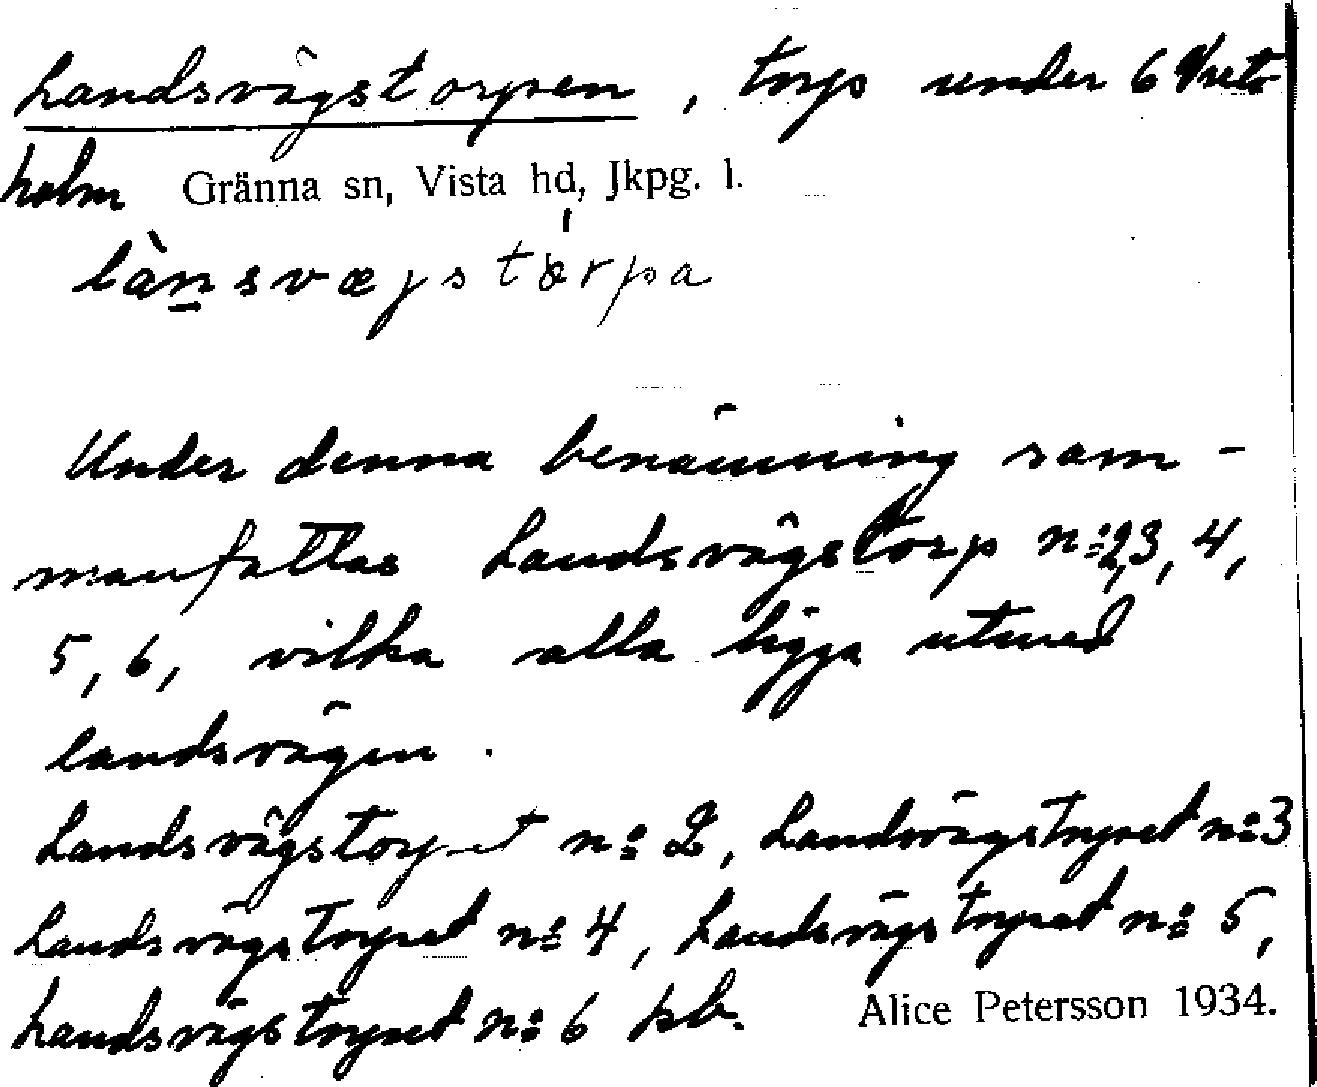 Landsvägstorpen, torp under 6 Vret-
holm Gränna sn, Vista hd, Jkpg. l.
lànsvæjstórpa
Under denna benämning sam-
manfattas Landsvägstorp n:2,3, 4,
5, 6, vilka alla ligga utmed
landsvägen.
Landsvägstorpet n:o 2, Landsvägstorpet n:o 3
Landsvägstorpet n:o 4, Landsvägstorpet n:o 5,
Landsvägstorpet n:o 6 jsb. Alice Petersson 1934.